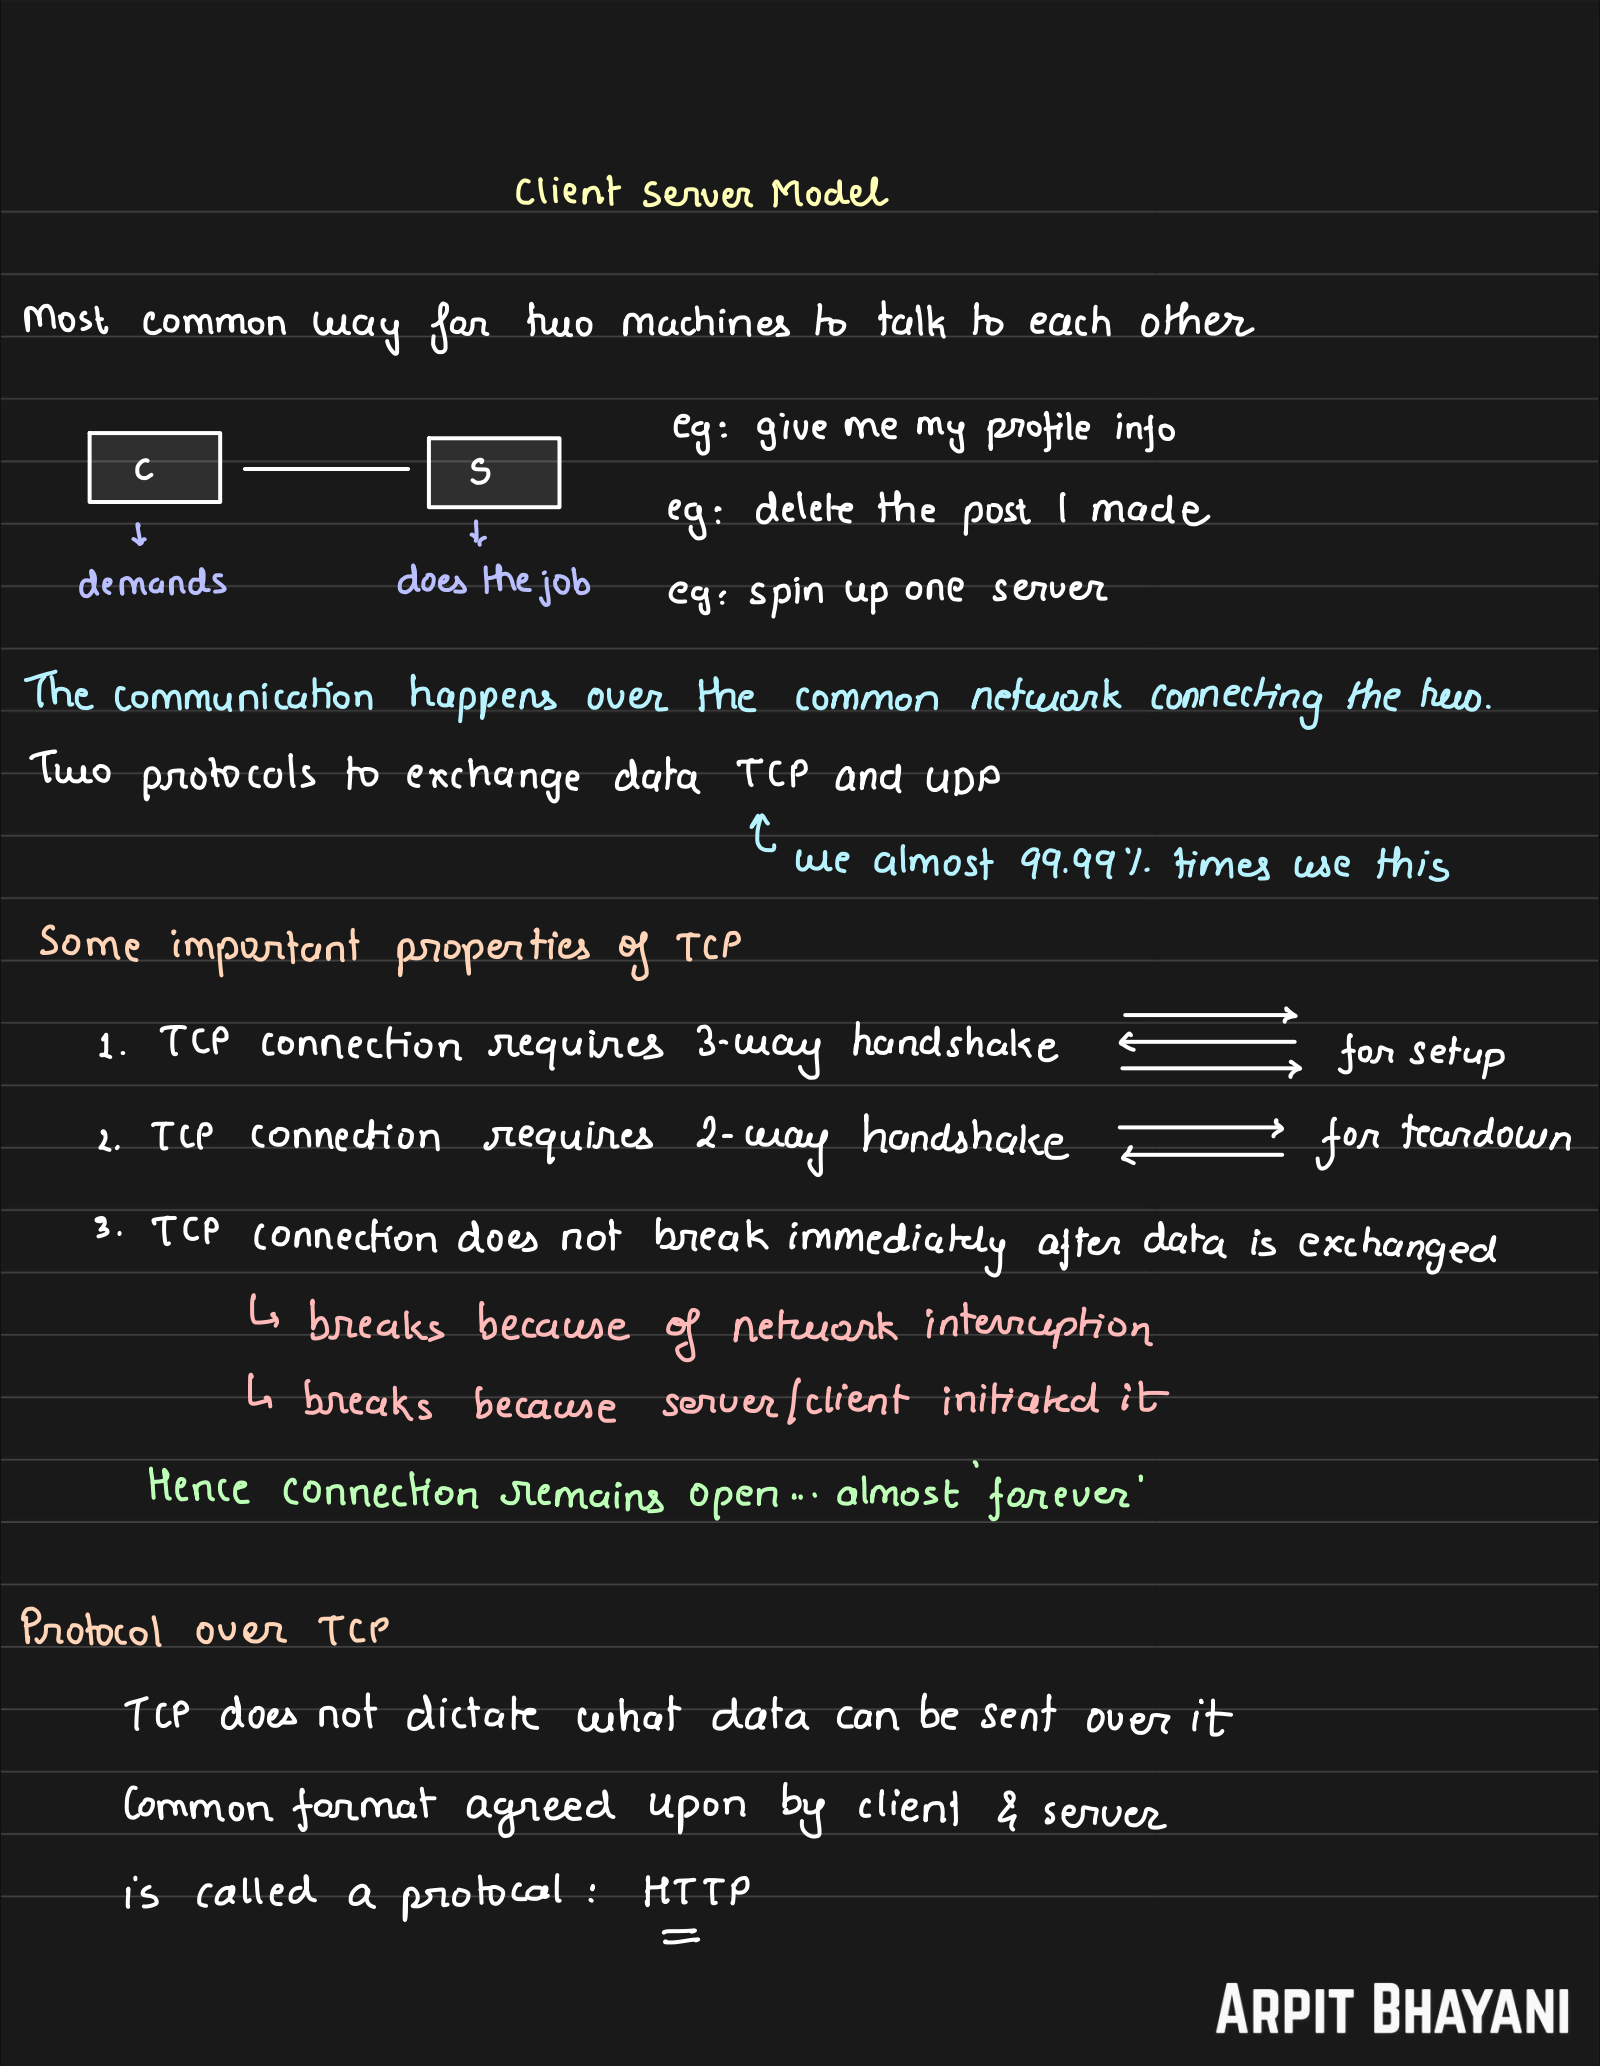 Client Server Model
Most common way for two machines to talk to each other
C S
demands does the job
eg: give me my profile info
eg: delete the post I made
eg: spin up one server
The communication happens over the common network connecting the two.
Two protocols to exchange data TCP and UDP
we almost 99.99% times use this
Some important properties of TCP
1. TCP connection requires 3-way handshake for setup
2. TCP connection requires 2-way handshake for teardown
3. TCP connection does not break immediately after data is exchanged
↳ breaks because of network interruption
↳ breaks because server/client initiated it
Hence connection remains open... almost 'forever'
Protocol over TCP
TCP does not dictate what data can be sent over it
Common format agreed upon by client & server
is called a protocal: HTTP
ARPIT BHAYANI